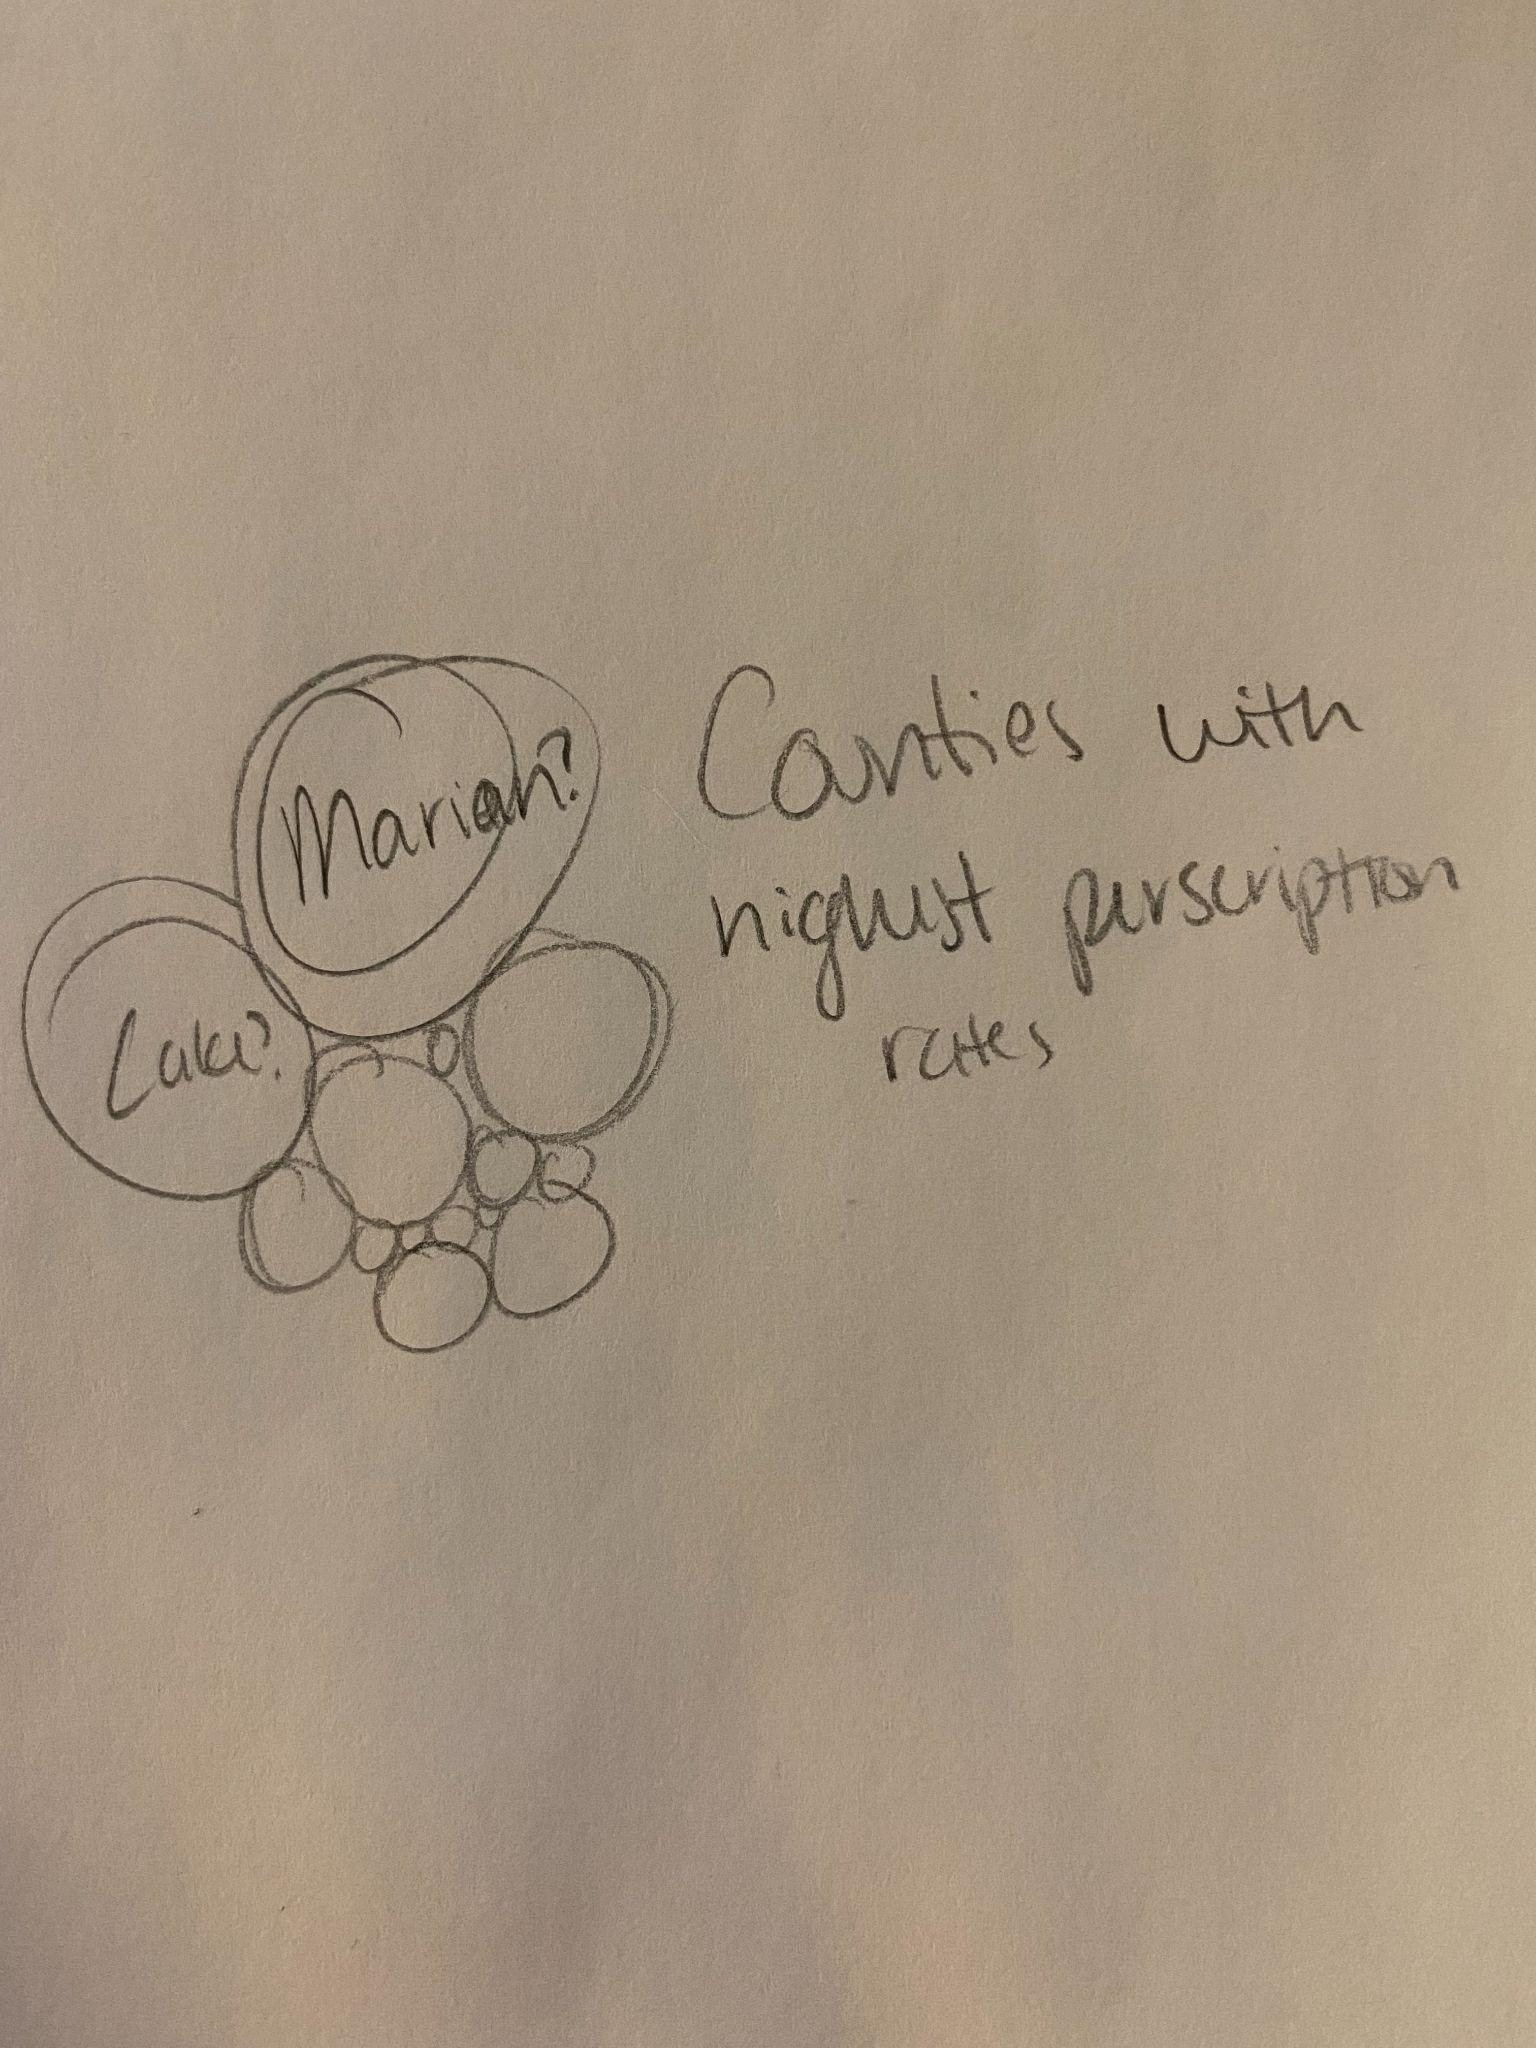 Marion?
Lake?
Counties with
highest perscription
rates